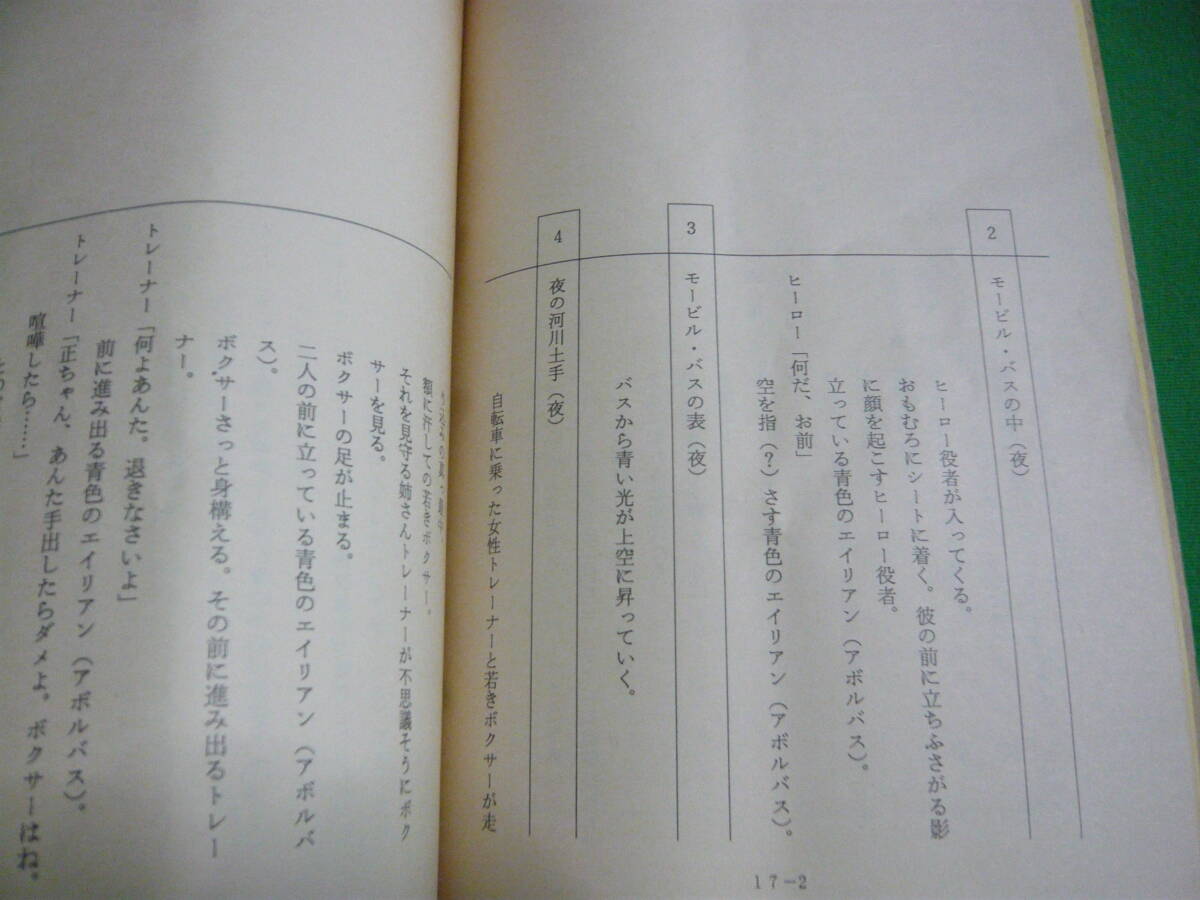 2
モービル・バスの中（夜）
ヒーロー役者が入ってくる。
おもむろにシートに着く。彼の前に立ちふさがる影
に顔を起こすヒーロー役者。
立っている青色のエイリアン（アボルバス）。
ヒーロー「何だ、お前」
空を指（？）さす青色のエイリアン（アボルバス）。
3
モービル・バスの表（夜）
バスから青い光が上空に昇っていく。
4
夜の河川土手（夜）
自転車に乗った女性トレーナーと若きボクサーが走
17-2
額に汗しての若きボクサー。
それを見守る姉さんトレーナーが不思議そうにボク
サーを見る。
ボクサーの足が止まる。
二人の前に立っている青色のエイリアン（アボルバ
ス）。
ボクサーさっと身構える。その前に進み出るトレー
ナー。
トレーナー「何よあんた。退きなさいよ」
前に進み出る青色のエイリアン（アボルバス）。
トレーナー「正ちゃん、あんた手出したらダメよ。ボクサーはね。
喧嘩したら……」